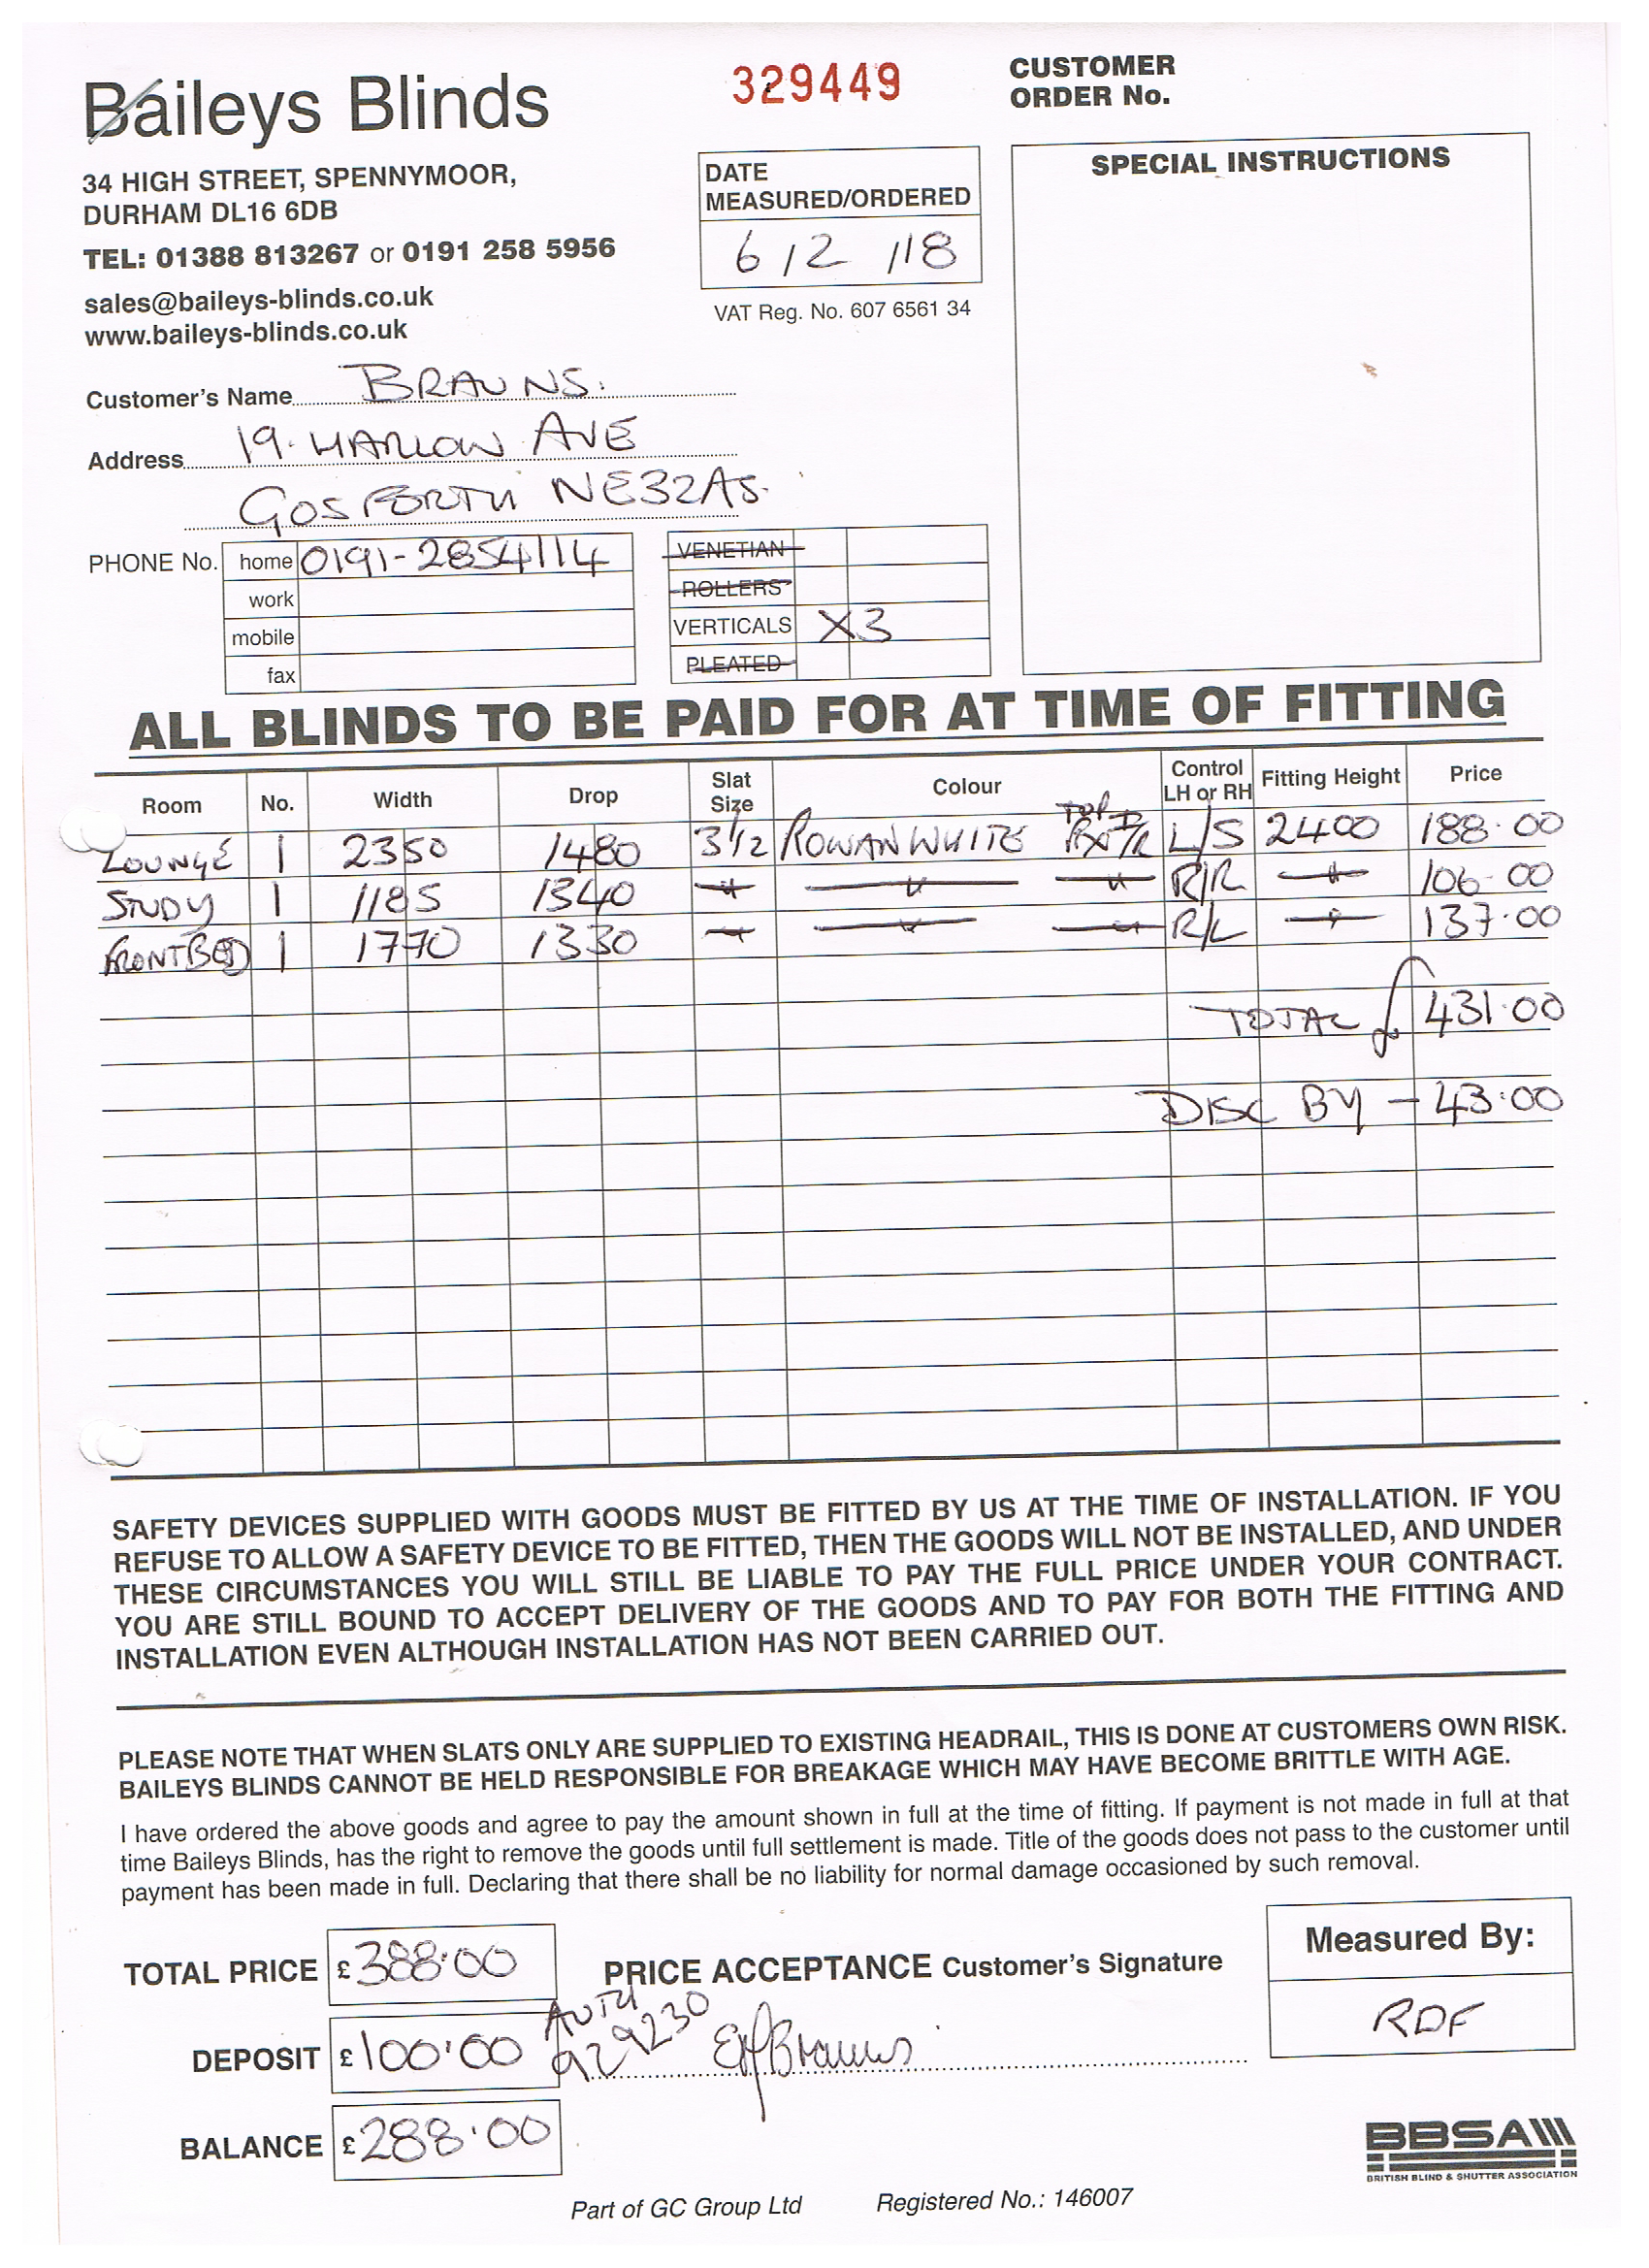 Baileys Blinds
34 HIGH STREET, SPENNYMOOR,
DURHAM DL16 6DB
TEL: 01388 813267 or 0191 258 5956
sales@baileys-blinds.co.uk
www.baileys-blinds.co.uk
329449
CUSTOMER
ORDER No.
DATE
MEASURED/ORDERED
6/2/18
VAT Reg. No. 607 6561 34
SPECIAL INSTRUCTIONS
Customer's Name BRAUNS.
Address 19. HARLOW AVE
GOSFORTH NE32AS.
PHONE No. home 0191-2854114
work
mobile
fax
VENETIAN
ROLLERS
VERTICALS X3
PLEATED
ALL BLINDS TO BE PAID FOR AT TIME OF FITTING
Room No. Width Drop Slat Size Colour Control LH or RH Fitting Height Price
LOUNGE 1 2350 1480 3 1/2 ROWAN WHITE TOP L/S 2400 188.00
STUDY 1 1185 1340 " " " R/R " 106.00
FRONT BED 1 1770 1330 " " " R/L " 137.00
TOTAL £ 431.00
DISC BY - 43.00
SAFETY DEVICES SUPPLIED WITH GOODS MUST BE FITTED BY US AT THE TIME OF INSTALLATION. IF YOU
REFUSE TO ALLOW A SAFETY DEVICE TO BE FITTED, THEN THE GOODS WILL NOT BE INSTALLED, AND UNDER
THESE CIRCUMSTANCES YOU WILL STILL BE LIABLE TO PAY THE FULL PRICE UNDER YOUR CONTRACT.
YOU ARE STILL BOUND TO ACCEPT DELIVERY OF THE GOODS AND TO PAY FOR BOTH THE FITTING AND
INSTALLATION EVEN ALTHOUGH INSTALLATION HAS NOT BEEN CARRIED OUT.
PLEASE NOTE THAT WHEN SLATS ONLY ARE SUPPLIED TO EXISTING HEADRAIL, THIS IS DONE AT CUSTOMERS OWN RISK.
BAILEYS BLINDS CANNOT BE HELD RESPONSIBLE FOR BREAKAGE WHICH MAY HAVE BECOME BRITTLE WITH AGE.
I have ordered the above goods and agree to pay the amount shown in full at the time of fitting. If payment is not made in full at that
time Baileys Blinds, has the right to remove the goods until full settlement is made. Title of the goods does not pass to the customer until
payment has been made in full. Declaring that there shall be no liability for normal damage occasioned by such removal.
TOTAL PRICE £388.00
PRICE ACCEPTANCE Customer's Signature
Measured By:
RDF
DEPOSIT £100.00
AUTH
929230
Brauns
BALANCE £288.00
BBSA
BRITISH BLIND & SHUTTER ASSOCIATION
Part of GC Group Ltd Registered No.: 146007